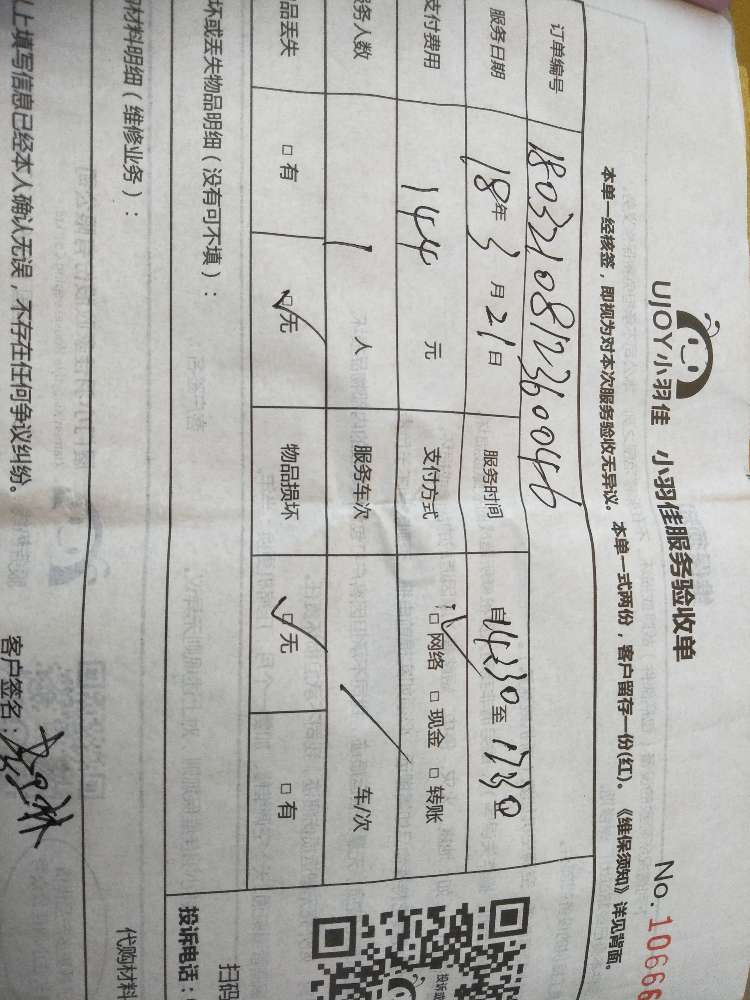 UJOY小羽佳 小羽佳服务验收单
No. 10666
本单一经核签，即视为对本次服务验收无异议。本单一式两份，客户留存一份(红)。《维保须知》详见背面。
订单编号 1803210812360046
服务日期 18年3月21日 服务时间 自14:30至17:30
支付费用 144元 支付方式 □网络 □现金 □转账
务人数 1人 服务车次 / 车/次
品丢失 □有 □无 物品损坏 □无 □有
坏或丢失物品明细（没有可不填）：
材料明细（维修业务）：
代购材料
上填写信息已经本人确认无误，不存在任何争议纠纷。
客户签名：
扫码
投诉电话：